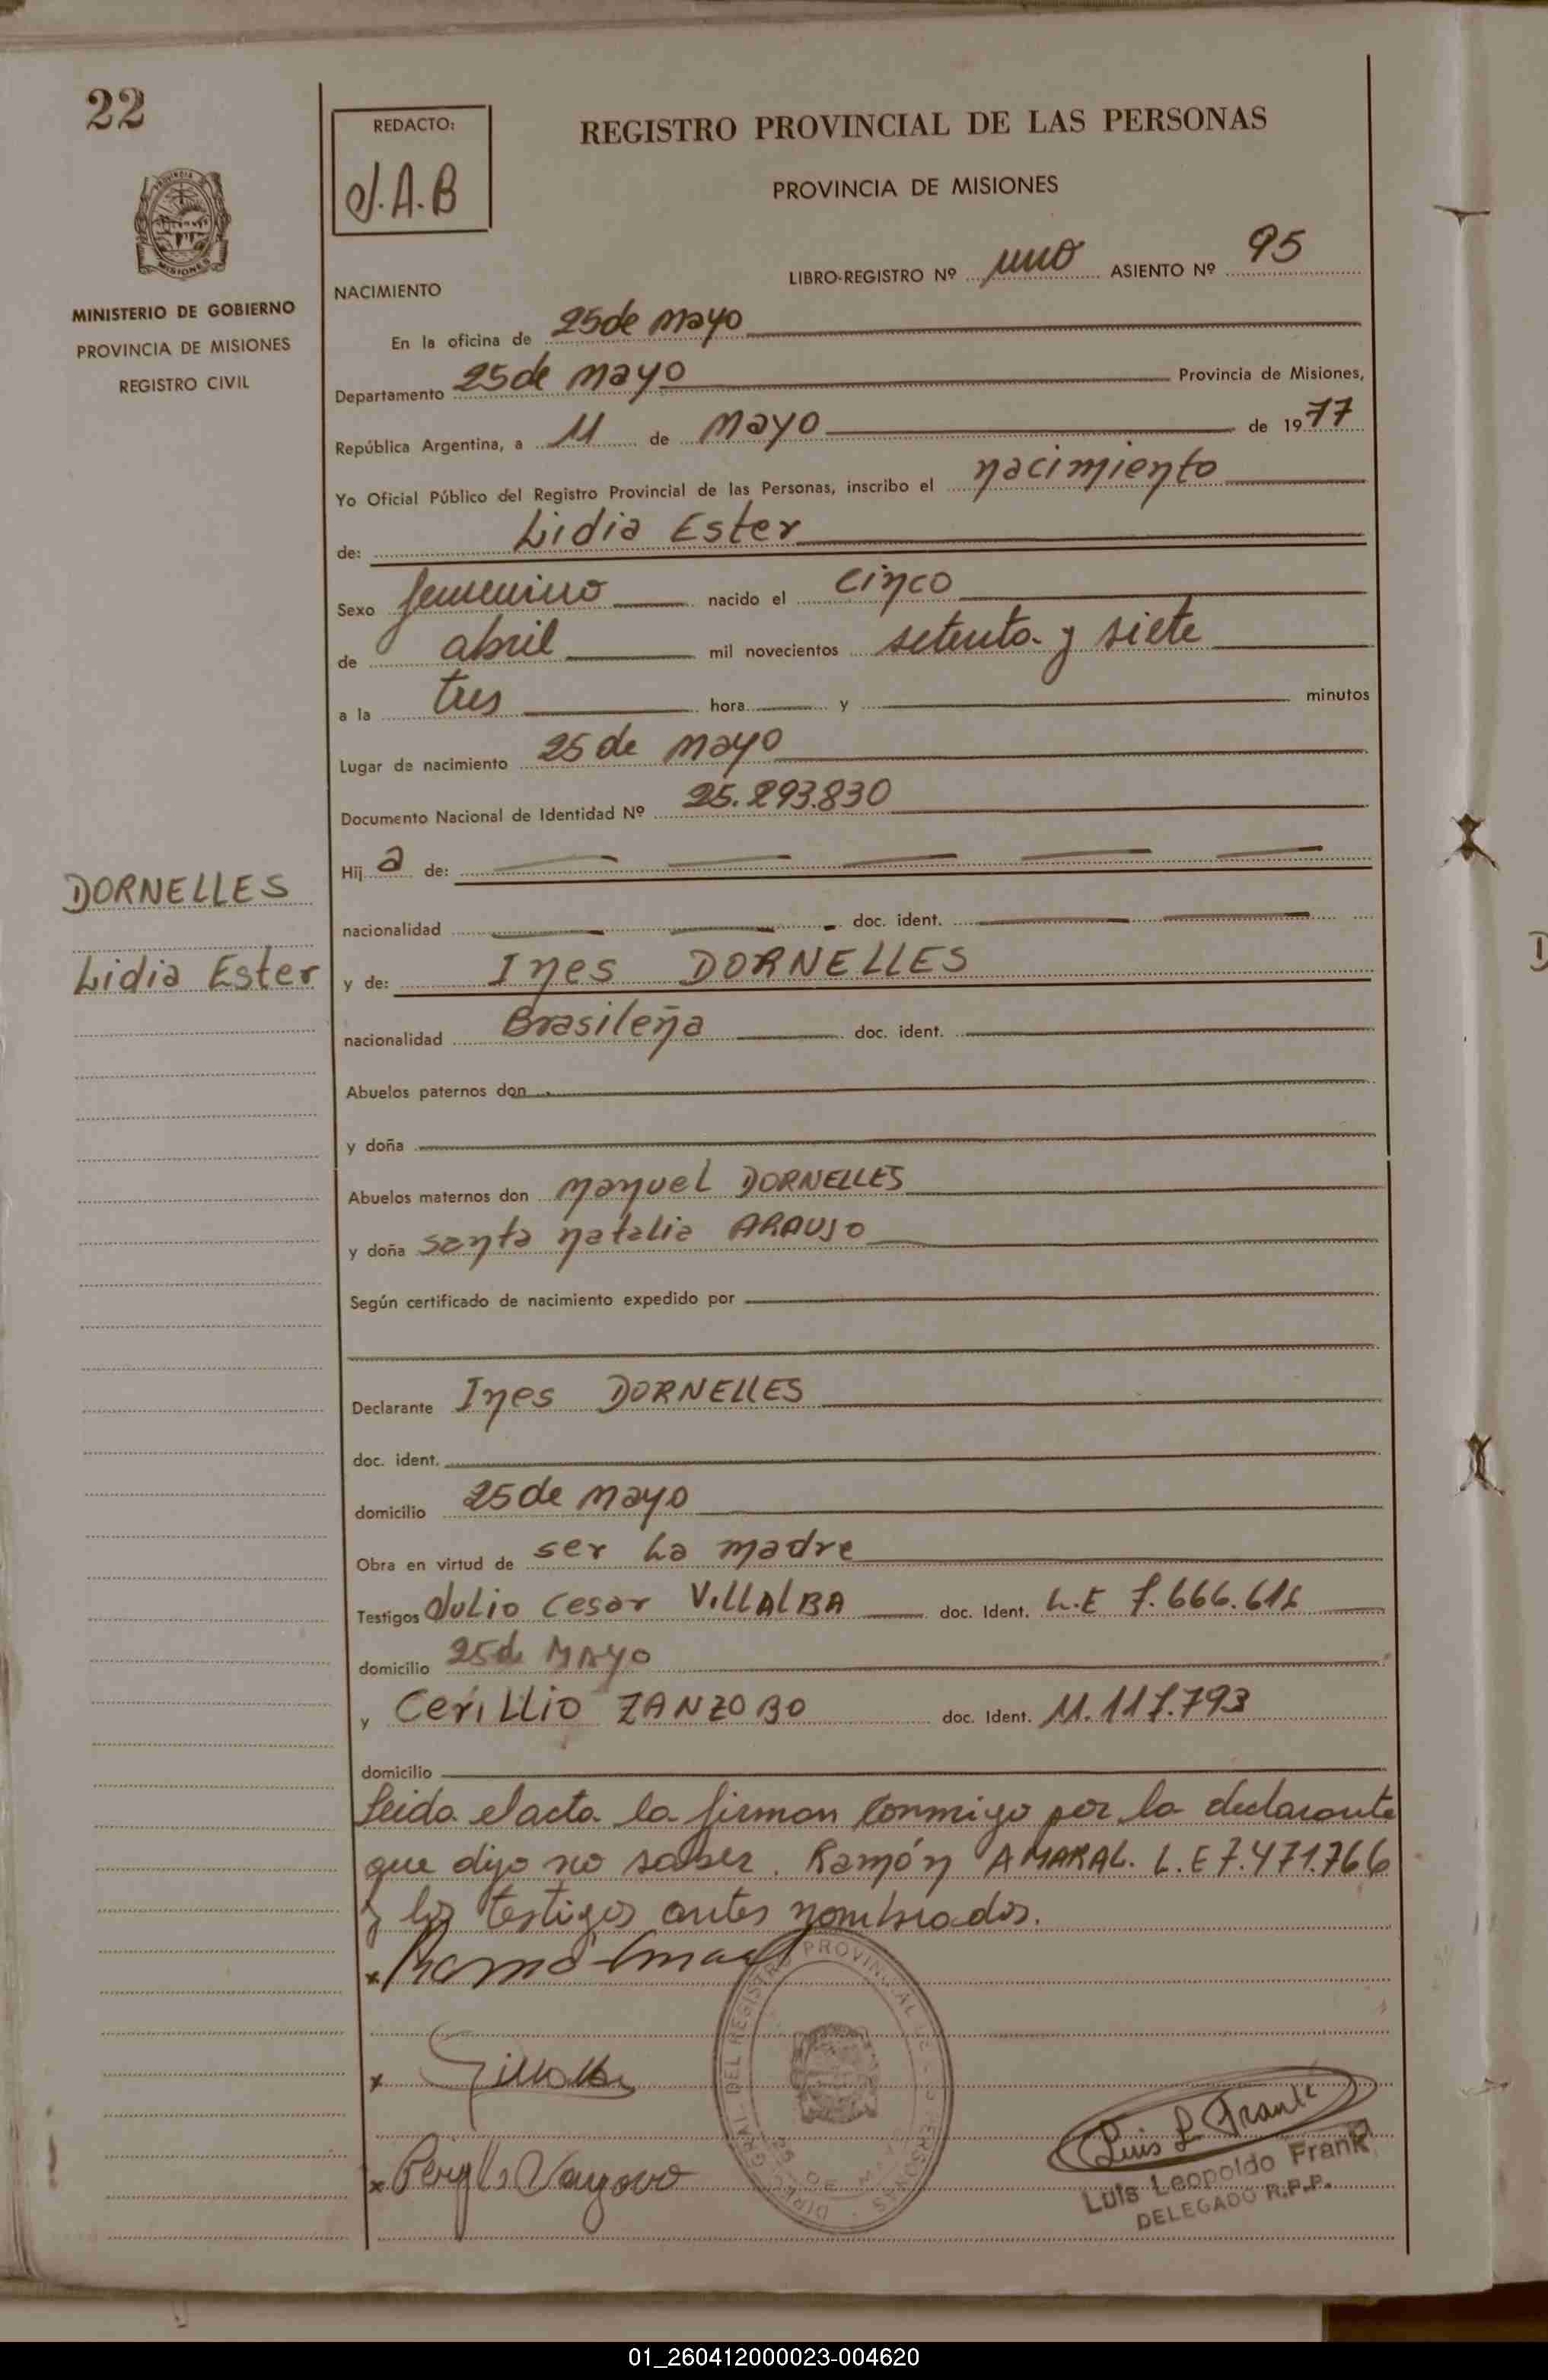 22
REDACTO:
J.A.B
REGISTRO PROVINCIAL DE LAS PERSONAS
PROVINCIA DE MISIONES
MISIONES
MINISTERIO DE GOBIERNO
PROVINCIA DE MISIONES
REGISTRO CIVIL
LIBRO-REGISTRO Nº uno ASIENTO Nº 95
NACIMIENTO
En la oficina de 25 de mayo
Departamento 25 de mayo Provincia de Misiones,
República Argentina, a 11 de mayo de 1977
Yo Oficial Público del Registro Provincial de las Personas, inscribo el nacimiento
de: Lidia Ester
Sexo femenino nacido el cinco
de abril mil novecientos setenta y siete
a la tres hora y minutos
Lugar de nacimiento 25 de mayo
Documento Nacional de Identidad Nº 25.293.830
Hij a de:
DORNELLES
nacionalidad doc. ident.
Lidia Ester
y de: Ines DORNELLES
nacionalidad Brasileña doc. ident.
Abuelos paternos don
y doña
Abuelos maternos don Manuel DORNELLES
y doña santa natalia ARAUJO
Según certificado de nacimiento expedido por
Declarante Ines DORNELLES
doc. ident.
domicilio 25 de mayo
Obra en virtud de ser La madre
Testigos Julio Cesar VILLALBA doc. Ident. L.E 7.666.616
domicilio 25 de MAYO
y Cerillio ZANZOBO doc. Ident. 11.117.793
domicilio
Leida el acta la firman conmigo por la declarante
que dijo no saber. Ramón AMARAL. L.E 7.471.766
y los testigos antes nombrados.
DIREC. GRAL. DEL REGISTRO PROVINCIAL DE LAS PERSONAS
25 DE MAYO
Luis L. Frank
Luis Leopoldo Frank
DELEGADO R.P.P.
01_260412000023-004620